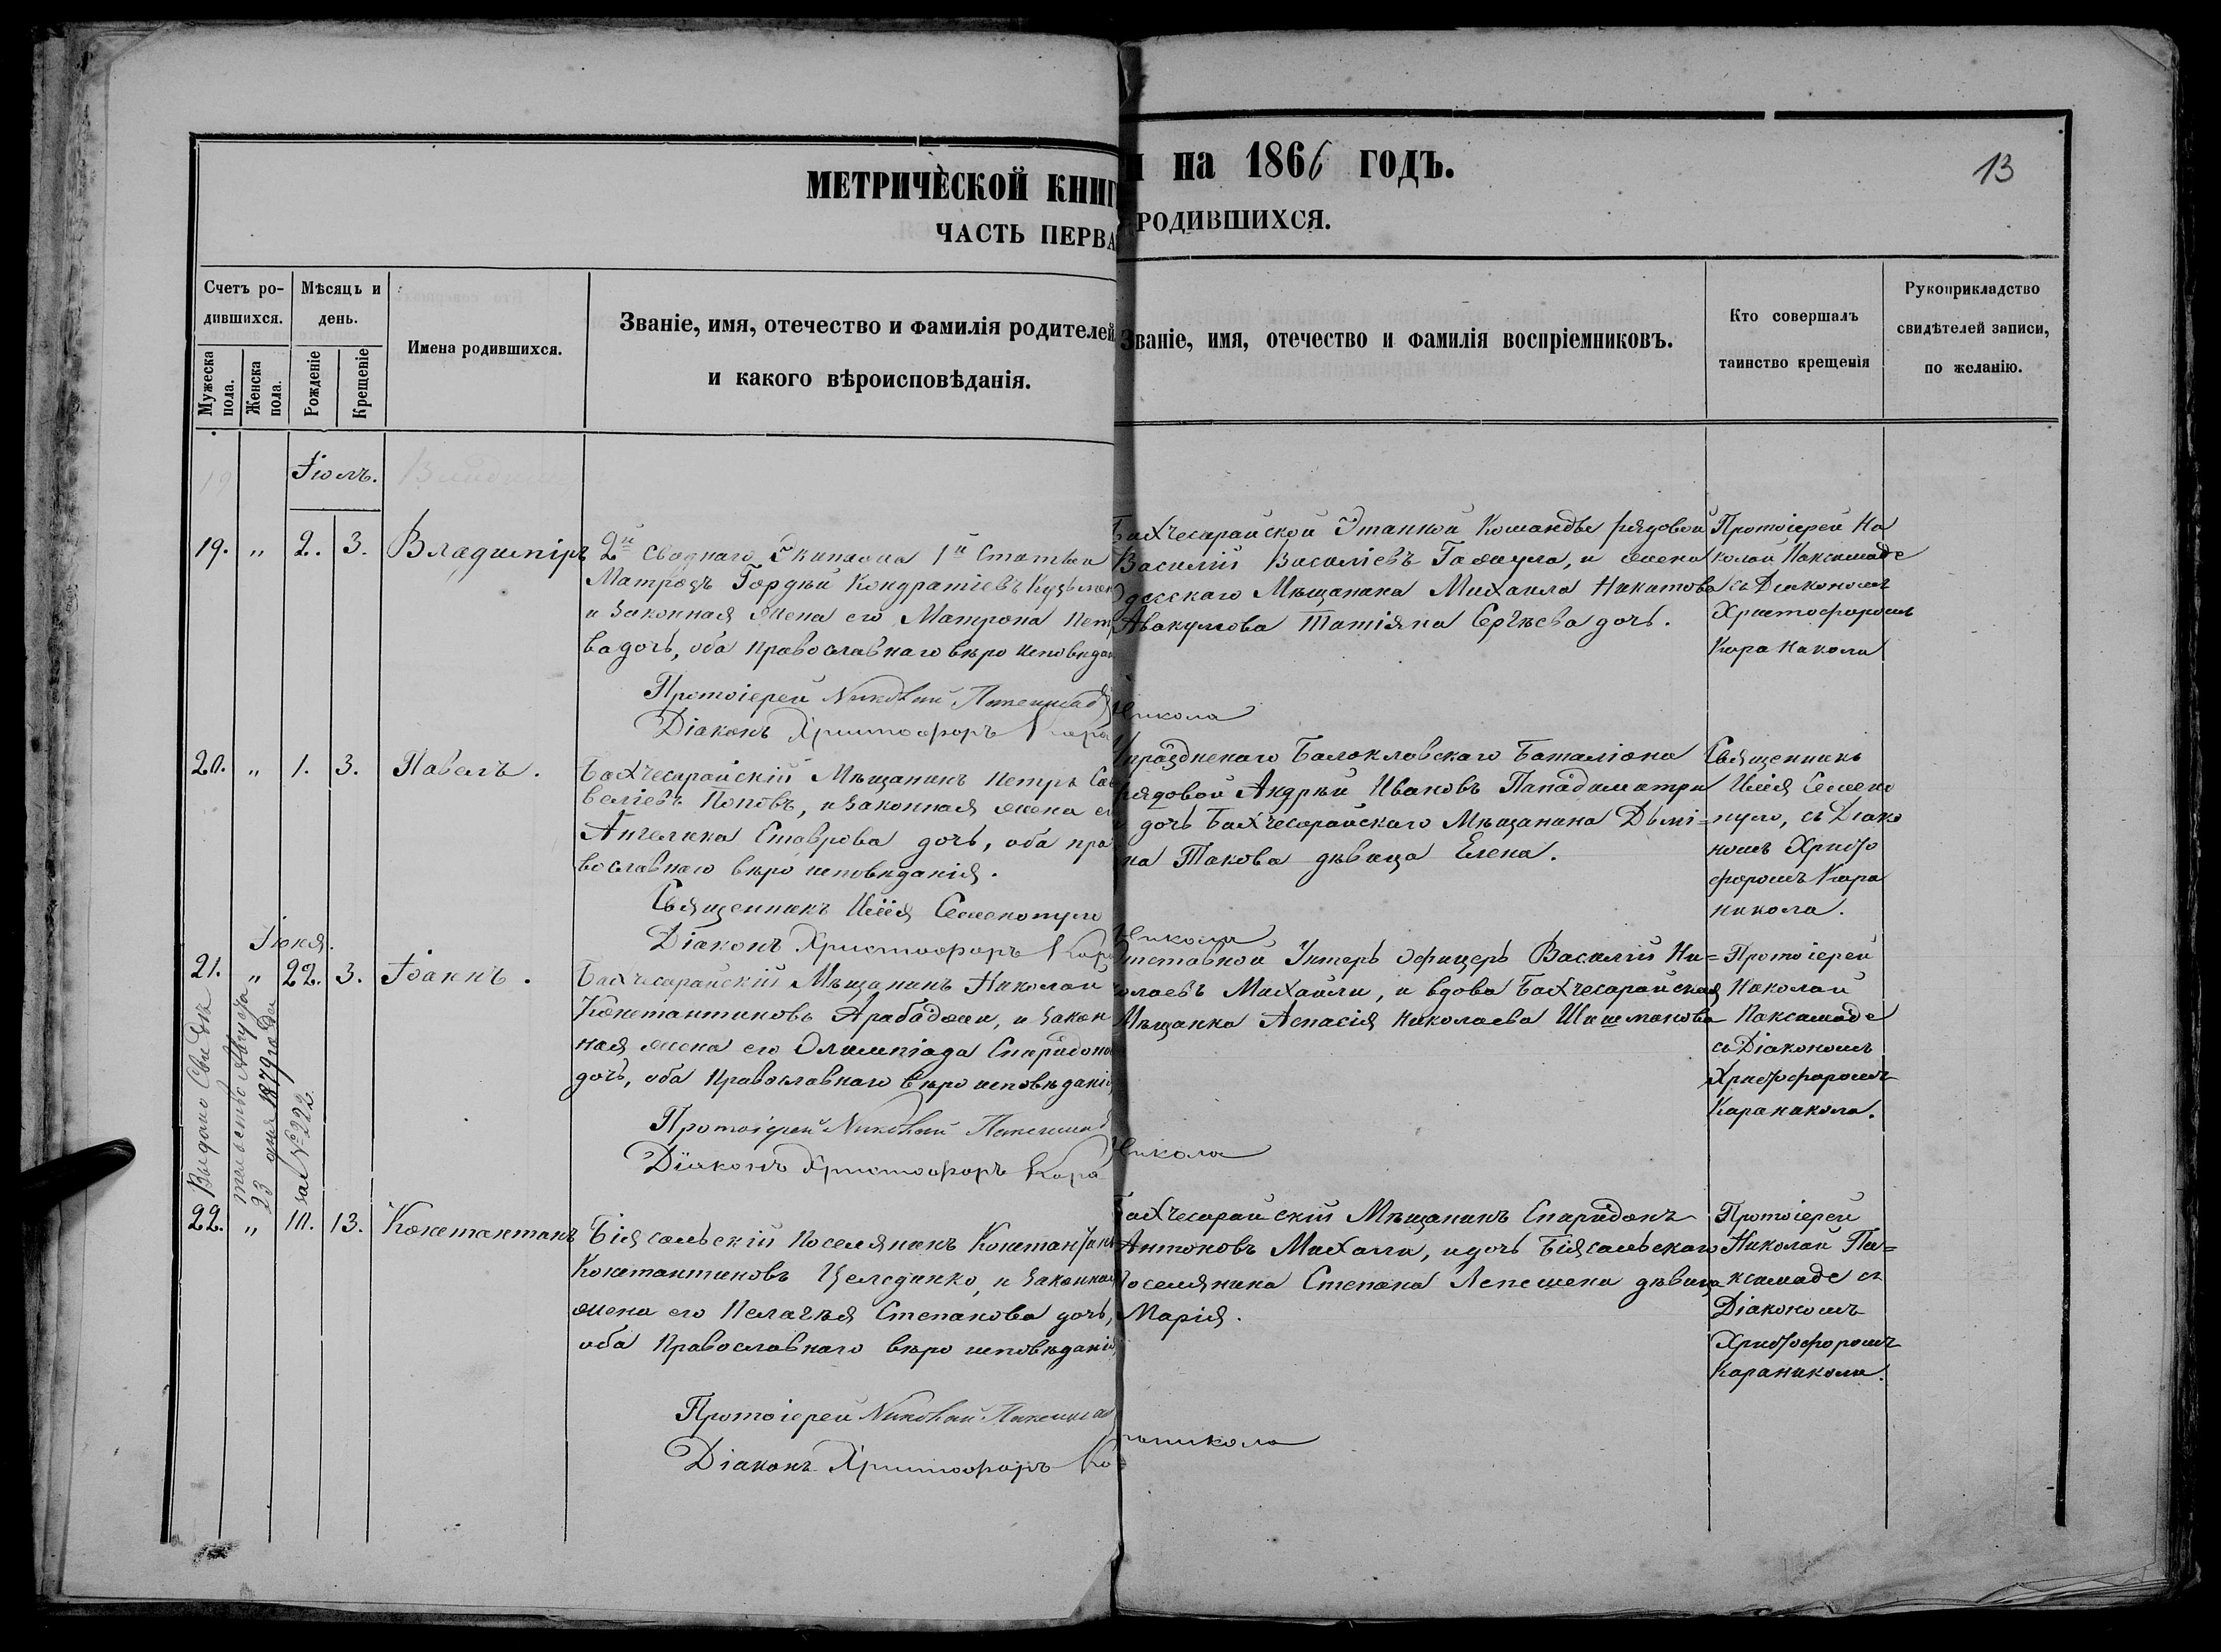 МЕТРИЧЕСКОЙ КНИГ и на 1866 годъ.
13
ЧАСТЬ ПЕРВА РОДИВШИХСЯ.
Счетъ ро-
дившихся.
Мужеска пола.
Женска пола.
Мѣсяцъ и
день.
Рожденіе
Крещеніе
Имена родившихся.
Званіе, имя, отечество и фамилія родителей
и какого вѣроисповѣданія.
Званіе, имя, отечество и фамилія воспріемниковъ.
Кто совершалъ
таинство крещенія
Рукоприкладство
свидѣтелей записи,
по желанію.
19
Іюль.
19. " 2. 3. Владиміръ
2й Своднаго Экипажа 1й Статьи
Матрозъ Гордѣй Кондратіевъ
и законная жена его Матрона Пет
ва дочь, оба Православнаго вѣро исповѣдан
Протоіерей Николай Паксимад
Діаконъ Христофоръ Кара
Бахчесарайской Этапной Команды рядовой
Василій Василіевъ и жена
Одесскаго Мѣщанина Михаила Никитова
Авакумова Татіяна Сергѣева дочь.
никола
Протоіерей Ни
колай Паксимаде
съ Діакономъ
Христофоромъ
Кара Никола
20. " 1. 3. Павелъ.
Бахчесарайскій Мѣщанинъ Петръ Сав
веліевъ Поповъ, и законная жена ег
Ангелика Ставрова дочь, оба пра
вославнаго вѣро исповѣданія.
Священникъ Илія
Діаконъ Христофоръ Кара
Упраздненаго Балоклавскаго Баталіона
рядовой Андрѣй Ивановъ Пападиматри
и дочь Бахчесарайскаго Мѣщанина Дімі=
на Такова дѣвица Елена.
никола
Священникъ
Илія Семено
пуло, съ Діако
номъ Христо
форомъ Кара
никола.
Іюня.
21. " 22. 3. Іоаннъ.
Бахчесарайскій Мѣщанинъ Николай
Константиновъ Арабаджи, и закон
ная жена его Олимпіада Спиридоно
дочь, оба Православнаго вѣро исповѣдані
Протоіерей Николай Паксимад
Діаконъ Христофоръ Кара
Отставной Унтеръ Офицеръ Василій Ни=
колаевъ Михайли, и вдова Бахчесарайская
Мѣщанка Аспасія Николаева Шишманова
никола
Протоіерей
Николай
Паксимаде
съ Діакономъ
Христофоромъ
Караникола.
Выдано Свидѣ
тельство Августа
23 дня 1879 года
за № 222.
22. " 10. 13. Константинъ
Біясальскій Поселянинъ Константинъ
Константиновъ Целединко, и законная
жена его Пелагѣя Степанова дочь,
оба Православнаго вѣро исповѣданія
Протоіерей Николай Паксимад
Діаконъ Христофоръ Ка
Бахчесарайскій Мѣщанинъ Спиридонъ
Антоновъ Михалли, и дочь Біясальскаго
Поселянина Степана Лепешени дѣвица
Марія.
раникола
Протоіерей
Николай Па=
ксимаде съ
Діакономъ
Христофоромъ
Караникола.